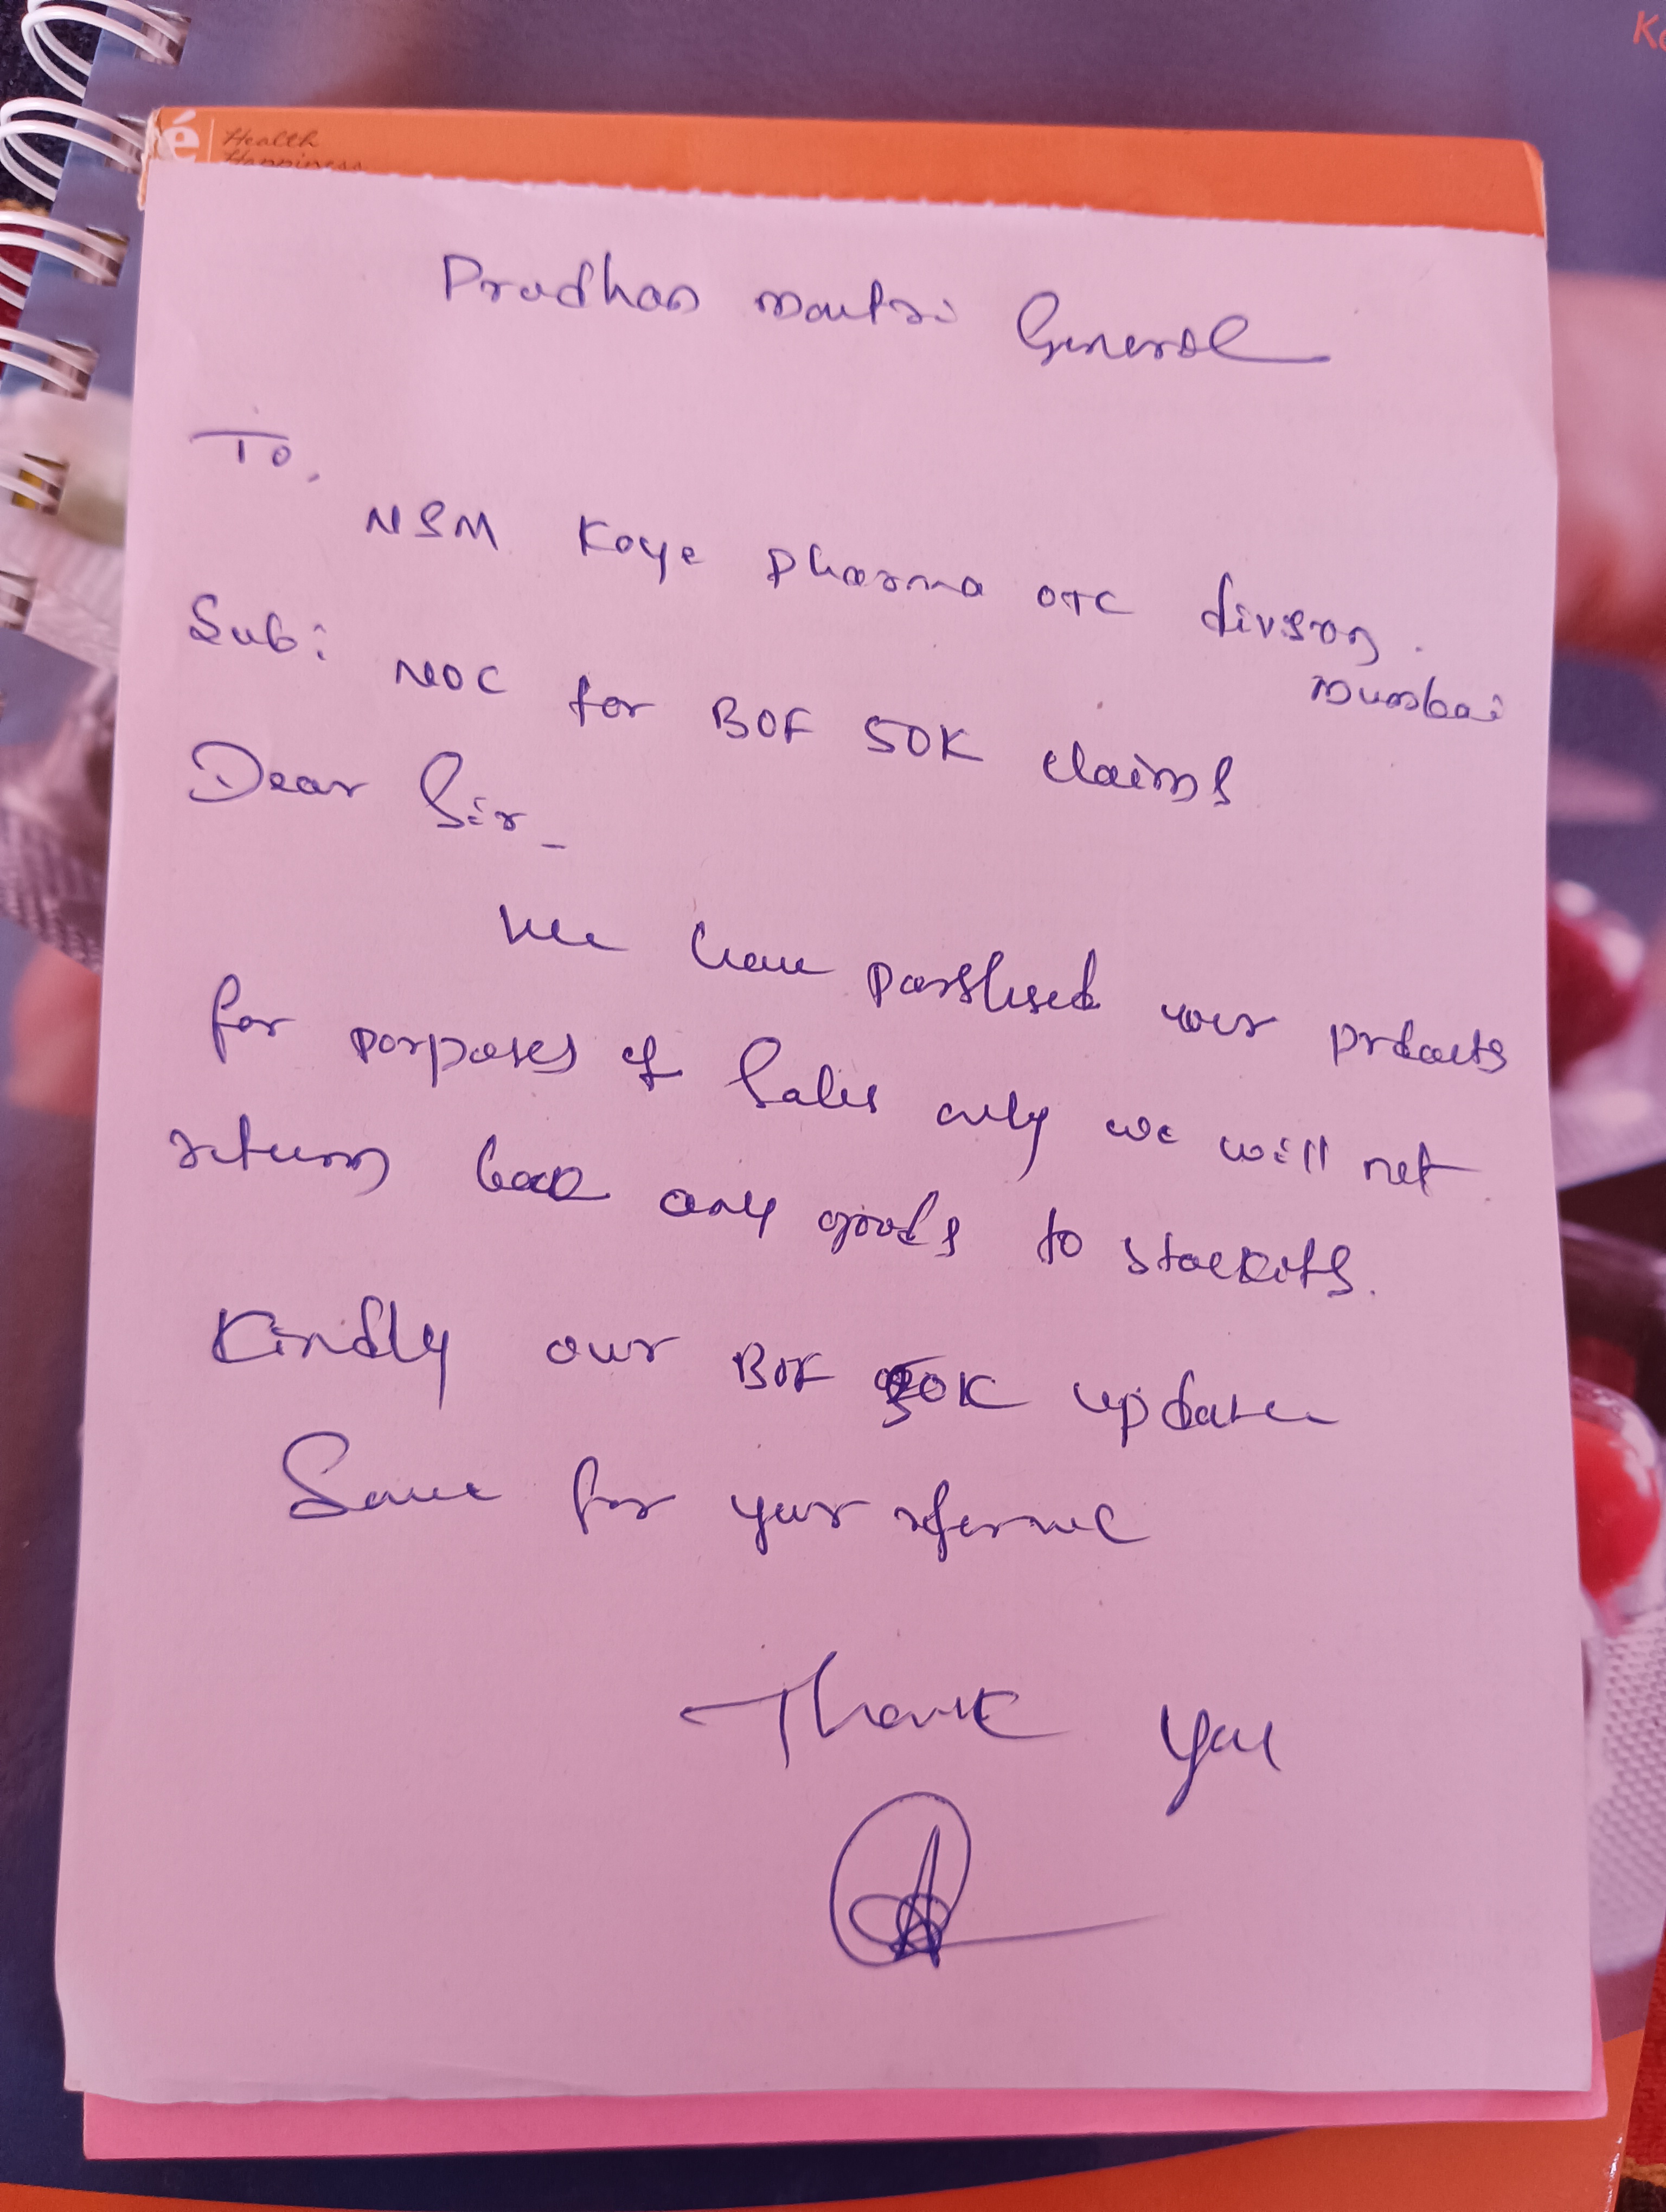 Ko
é | Health
Happiness
Pradhan Mantri General
To,
NSM Koye Pharma OTC divson.
Mumbai
Sub: NOC for BOF 50K claims
Dear Sir_
We have parshesed your prdacts
for porposes of Sales only we will not
return back any goods to stockits.
Kindly our BOF 50K update
Same for your refernce
Thank you